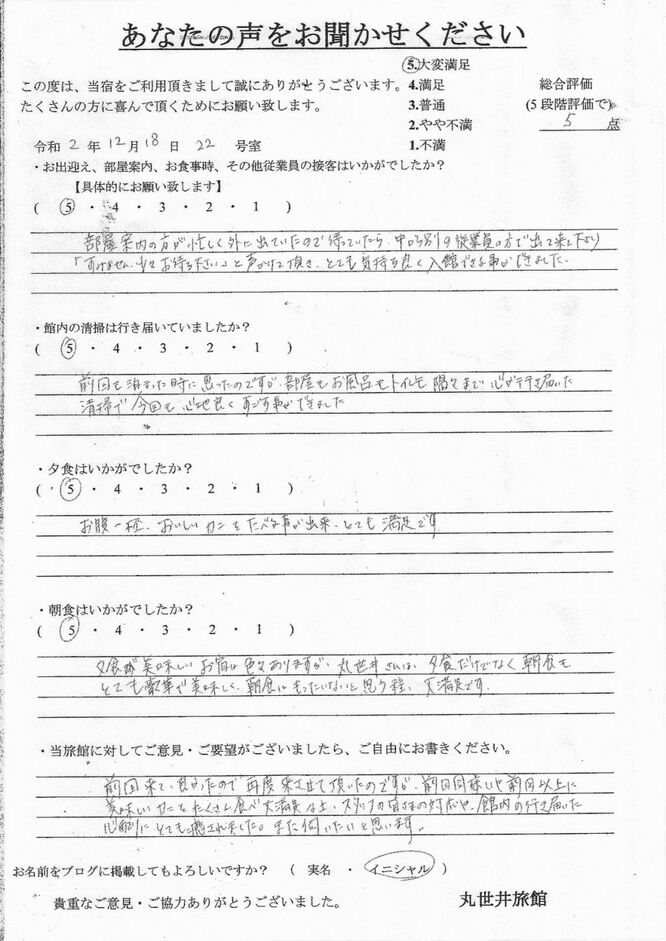 あなたの声をお聞かせください
この度は、当宿をご利用頂きまして誠にありがとうございます。
たくさんの方に喜んで頂くためにお願い致します。
5.大変満足
4.満足
3.普通
2.やや不満
1.不満
総合評価
(5 段階評価で)
5 点
令和 2 年 12 月 18 日 22 号室
・お出迎え、部屋案内、お食事時、その他従業員の接客はいかがでしたか？
【具体的にお願い致します】
( 5 ・ 4 ・ 3 ・ 2 ・ 1 )
部屋案内の方が忙しく外に出ていたので待っていたら、中から別の従業員の方で出て来て下さり
「すみません、少々お待ち下さい」と声かけて頂き、とても気持ち良く入館できる事ができました。
・館内の清掃は行き届いていましたか？
( 5 ・ 4 ・ 3 ・ 2 ・ 1 )
前回も泊まった時に思ったのですが部屋もお風呂もトイレも隅々まで心が行き届いた
清掃で今回も心地良くすごす事ができました
・夕食はいかがでしたか？
( 5 ・ 4 ・ 3 ・ 2 ・ 1 )
お腹一杯、おいしいカニをたべる事が出来、とても満足です
・朝食はいかがでしたか？
( 5 ・ 4 ・ 3 ・ 2 ・ 1 )
夕食が美味しいお宿は色々ありますが、丸世井さんは、夕食だけでなく朝食も
とても豪華で美味しく、朝食にもったいないと思う程、大満足です。
・当旅館に対してご意見・ご要望がございましたら、ご自由にお書きください。
前回来て、良かったので再度来させて頂いたのですが、前回同様いや前回以上に
美味しいカニをたくさん食べ大満足な上、スタッフの皆さまの対応や、館内の行き届いた
心配りにとても癒されました。また伺いたいと思います。
お名前をブログに掲載してもよろしいですか？ ( 実名 ・ イニシャル )
貴重なご意見・ご協力ありがとうございました。
丸世井旅館